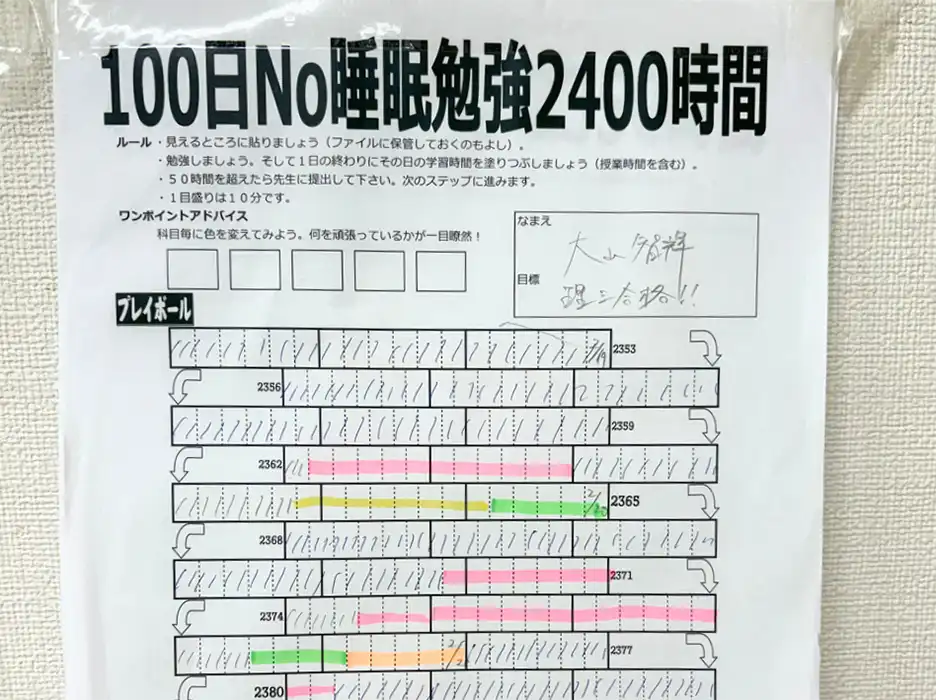 100日No睡眠勉強2400時間
ルール・見えるところに貼りましょう（ファイルに保管しておくのもよし）。
・勉強しましょう。そして１日の終わりにその日の学習時間を塗りつぶしましょう（授業時間を含む）。
・５０時間を超えたら先生に提出して下さい。次のステップに進みます。
・１目盛りは１０分です。
ワンポイントアドバイス
科目毎に色を変えてみよう。何を頑張っているかが一目瞭然！
なまえ
大山
目標
理三合格!!
プレイボール
2/19 2353
2356
2359
2362
2/20 2365
2368
2371
2374
2377
2380